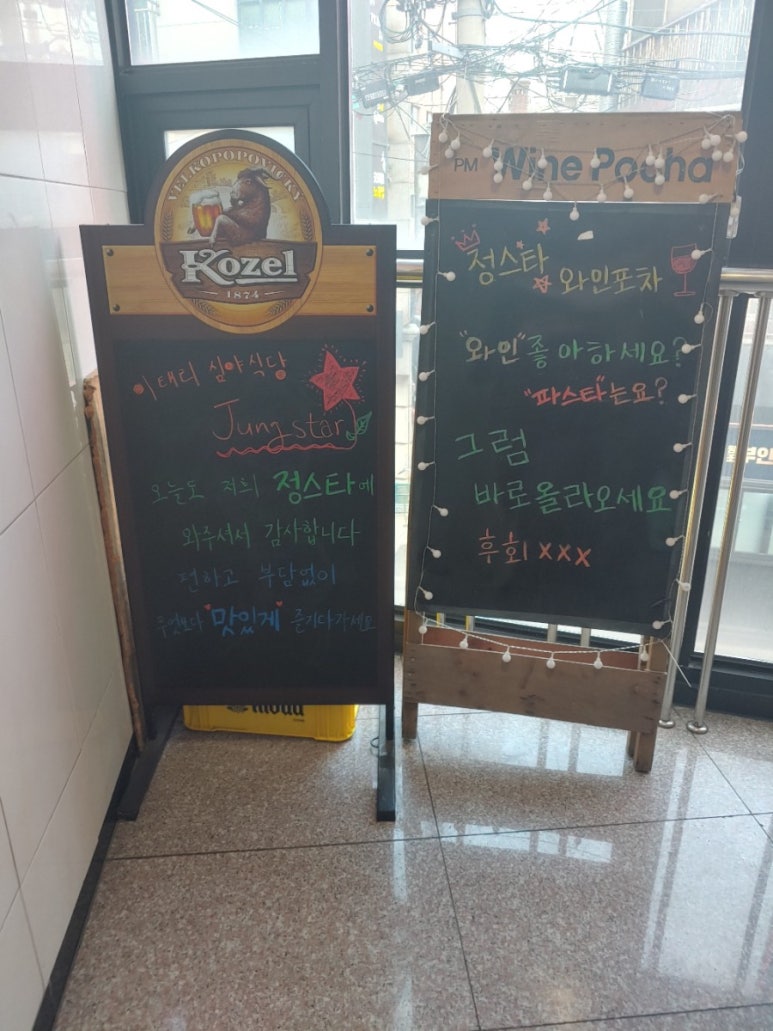 VELKOPOPOVICKÝ
Kozel
1874
이태리 심야식당
Jungstar
오늘도 저희 정스타에
와주셔서 감사합니다
편하고 부담없이
무엇보다 "맛있게" 즐기다가세요
PM Wine Pocha
정스타 와인포차
"와인"좋아하세요?
"파스타"는요?
그럼
바로올라오세요
후회 xxx